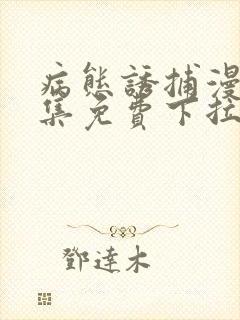 病態誘捕漫
集免費下拉
鄧達木